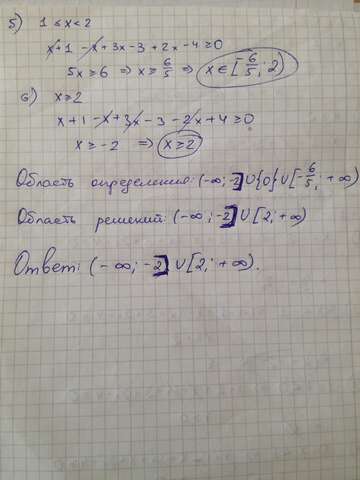 5) 1 ≤ x < 2
x+1 -x+3x-3+2x-4≥0
5x ≥ 6 ⇒ x ≥ 6/5 ⇒ x ∈ [-6/5; 2)
6) x≥2
x+1-x+3x-3-2x+4≥0
x ≥ -2 ⇒ x≥2
Область определения: (-∞; -2]∪{0}∪[-6/5; +∞)
Область решений: (-∞; -2]∪[2; +∞)
Ответ: (-∞; -2]∪[2; +∞).